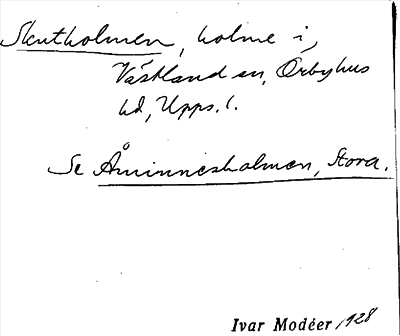 Skutholmen, holme i,
Västland sn, Örbyhus
hd, Upps. l.
Se Åminnesholmen, Stora.
Ivar Modéer 1928